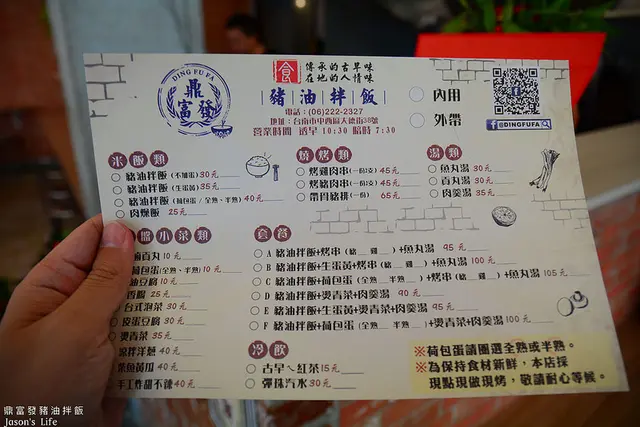 DING FU FA
鼎富發
食
傳承的古早味
在地的人情味
豬油拌飯
電話：(06)222-2327
地址：台南市中西區大德街58號
營業時間 透早10:30 暗時7:30
內用
外帶
@DINGFUFA
米飯類
豬油拌飯(不加蛋) 30元
豬油拌飯(生蛋黃) 35元
豬油拌飯(荷包蛋/全熟、半熟) 40元
肉燥飯 25元
燒烤類
烤雞肉串(一份2支) 45元
烤豬肉串(一份2支) 45元
帶骨豬排(一份) 65元
湯類
魚丸湯 30元
貢丸湯 30元
肉羹湯 35元
小菜類
10元
荷包蛋(全熟、半熟) 10元
油豆腐 10元
香腸 25元
台式泡菜 30元
皮蛋豆腐 30元
燙青菜 35元
涼拌洋蔥 40元
柴魚黃瓜 40元
手工炸甜不辣 40元
套餐
A 豬油拌飯+烤串(豬 雞 )+魚丸湯 95元
B 豬油拌飯+生蛋黃+烤串(豬 雞 )+魚丸湯 100元
C 豬油拌飯+荷包蛋(全熟 半熟 )+烤串(豬 雞 )+魚丸湯 105元
D 豬油拌飯+燙青菜+肉羹湯 90元
E 豬油拌飯+生蛋黃+燙青菜+肉羹湯 95元
F 豬油拌飯+荷包蛋(全熟 半熟 )+燙青菜+肉羹湯 100元
冷飲
古早ㄟ紅茶 15元
彈珠汽水 30元
※荷包蛋請圈選全熟或半熟。
※為保持食材新鮮，本店採
現點現做現烤，敬請耐心等候。
鼎富發豬油拌飯
Jason's Life